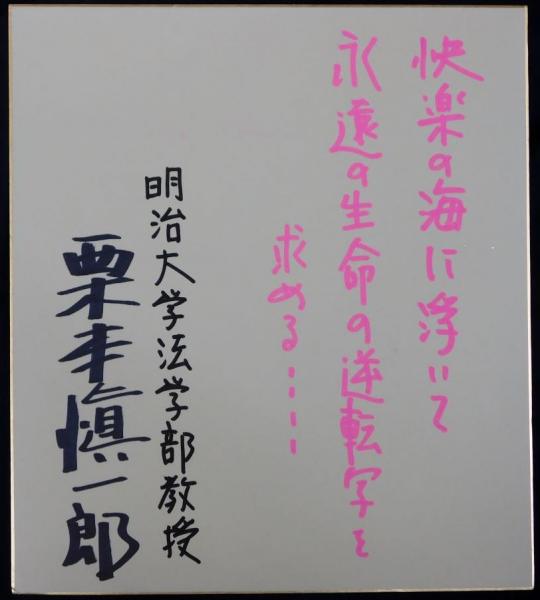 快楽の海に浮いて
永遠の生命の逆転字を
求める‥‥
明治大学法学部教授
栗本慎一郎